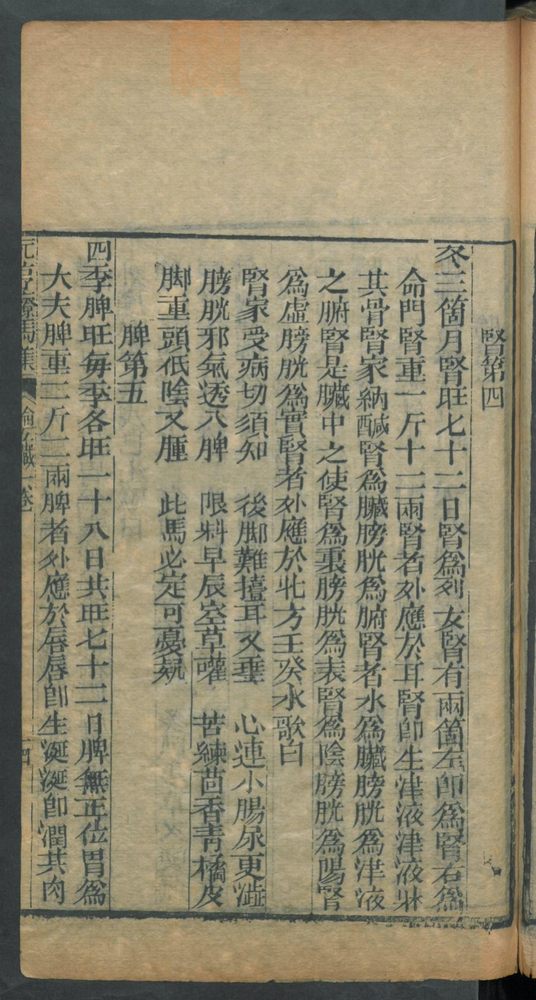 腎第四
冬三箇月腎旺七十二日腎爲列女腎有兩箇左卽爲腎右爲
命門腎重一斤十二兩腎者外應於耳腎卽生津液津液牀
其骨腎家納醎腎爲臟膀胱爲腑腎者水爲臟膀胱爲津液
之腑腎是臟中之使腎爲裏膀胱爲表腎爲陰膀胱爲陽腎
爲虛膀胱爲實腎者外應於北方王癸水歌曰
腎家受病切須知 後脚難擡耳又垂 心連小腸尿更澁
膀胱邪氣透入脾 限料早辰空草嚾 苦練茴香靑橘皮
脚重頭低陰又腫 此馬必定可憂
脾第五
四季脾旺每季各旺一十八日共旺七十二日脾無正位胃爲
大夫脾重二斤二兩脾者外應於唇唇卽生涎涎卽潤其肉
元亨療馬集 論五臟 卷 四